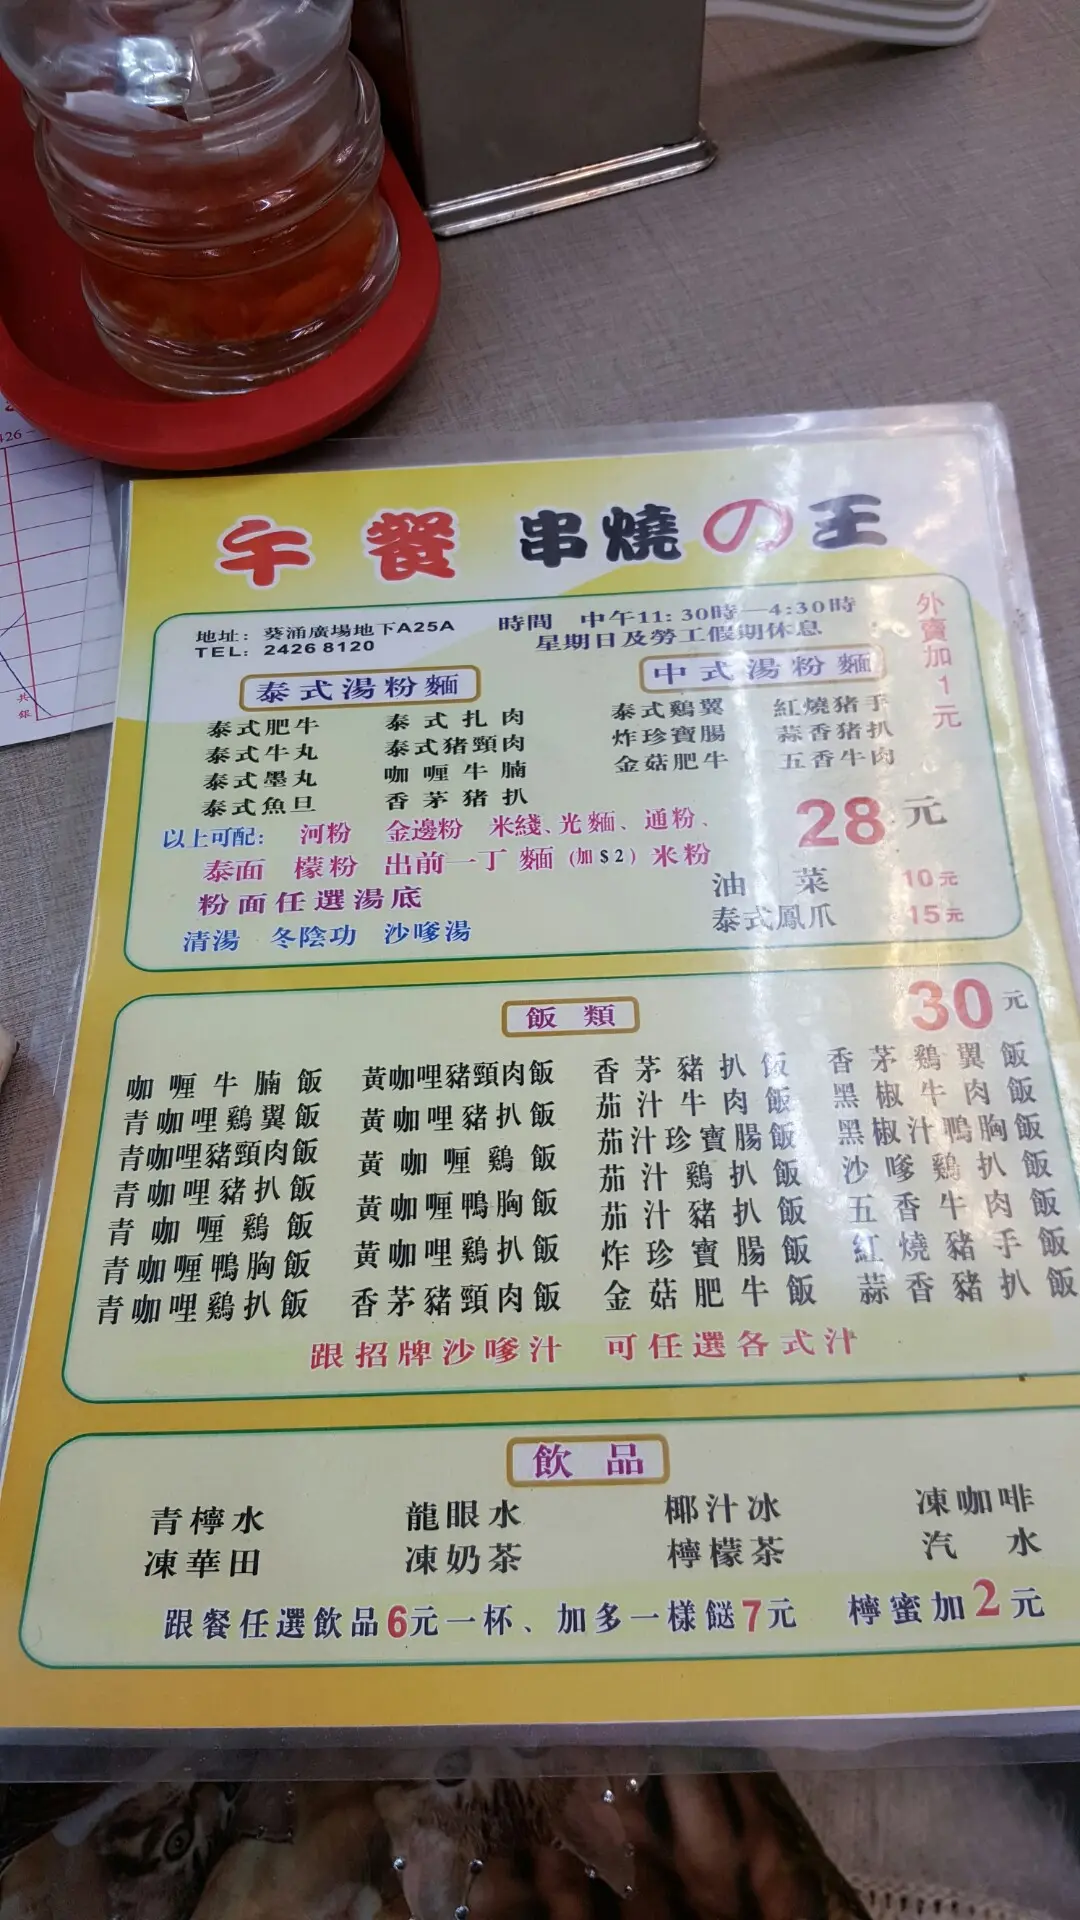 午餐 串燒の王
地址：葵涌廣場地下A25A
TEL：2426 8120
時間 中午11:30時—4:30時
星期日及勞工假期休息
外賣加1元
泰式湯粉麵
泰式肥牛 泰式扎肉
泰式牛丸 泰式豬頸肉
泰式墨丸 咖喱牛腩
泰式魚旦 香茅豬扒
中式湯粉麵
泰式鷄翼 紅燒猪手
炸珍寶腸 蒜香猪扒
金菇肥牛 五香牛肉
28元
以上可配： 河粉 金邊粉 米綫、光麵、通粉、
泰面 檬粉 出前一丁麵（加$2）米粉
粉面任選湯底
清湯 冬陰功 沙嗲湯
油菜 10元
泰式鳳爪 15元
飯類
30元
咖喱牛腩飯 黃咖哩豬頸肉飯 香茅豬扒飯 香茅鷄翼飯
青咖哩鷄翼飯 黃咖哩豬扒飯 茄汁牛肉飯 黑椒牛肉飯
青咖哩豬頸肉飯 黃咖喱鷄飯 茄汁珍寶腸飯 黑椒汁鴨胸飯
青咖哩豬扒飯 黃咖喱鴨胸飯 茄汁鷄扒飯 沙嗲鷄扒飯
青咖喱鷄飯 黃咖哩鷄扒飯 茄汁豬扒飯 五香牛肉飯
青咖喱鴨胸飯 香茅豬頸肉飯 炸珍寶腸飯 紅燒豬手飯
青咖哩鷄扒飯 金菇肥牛飯 蒜香豬扒飯
跟招牌沙嗲汁 可任選各式汁
飲品
青檸水 龍眼水 椰汁冰 凍咖啡
凍華田 凍奶茶 檸檬茶 汽水
跟餐任選飲品6元一杯、加多一樣餸7元 檸蜜加2元
共
銀